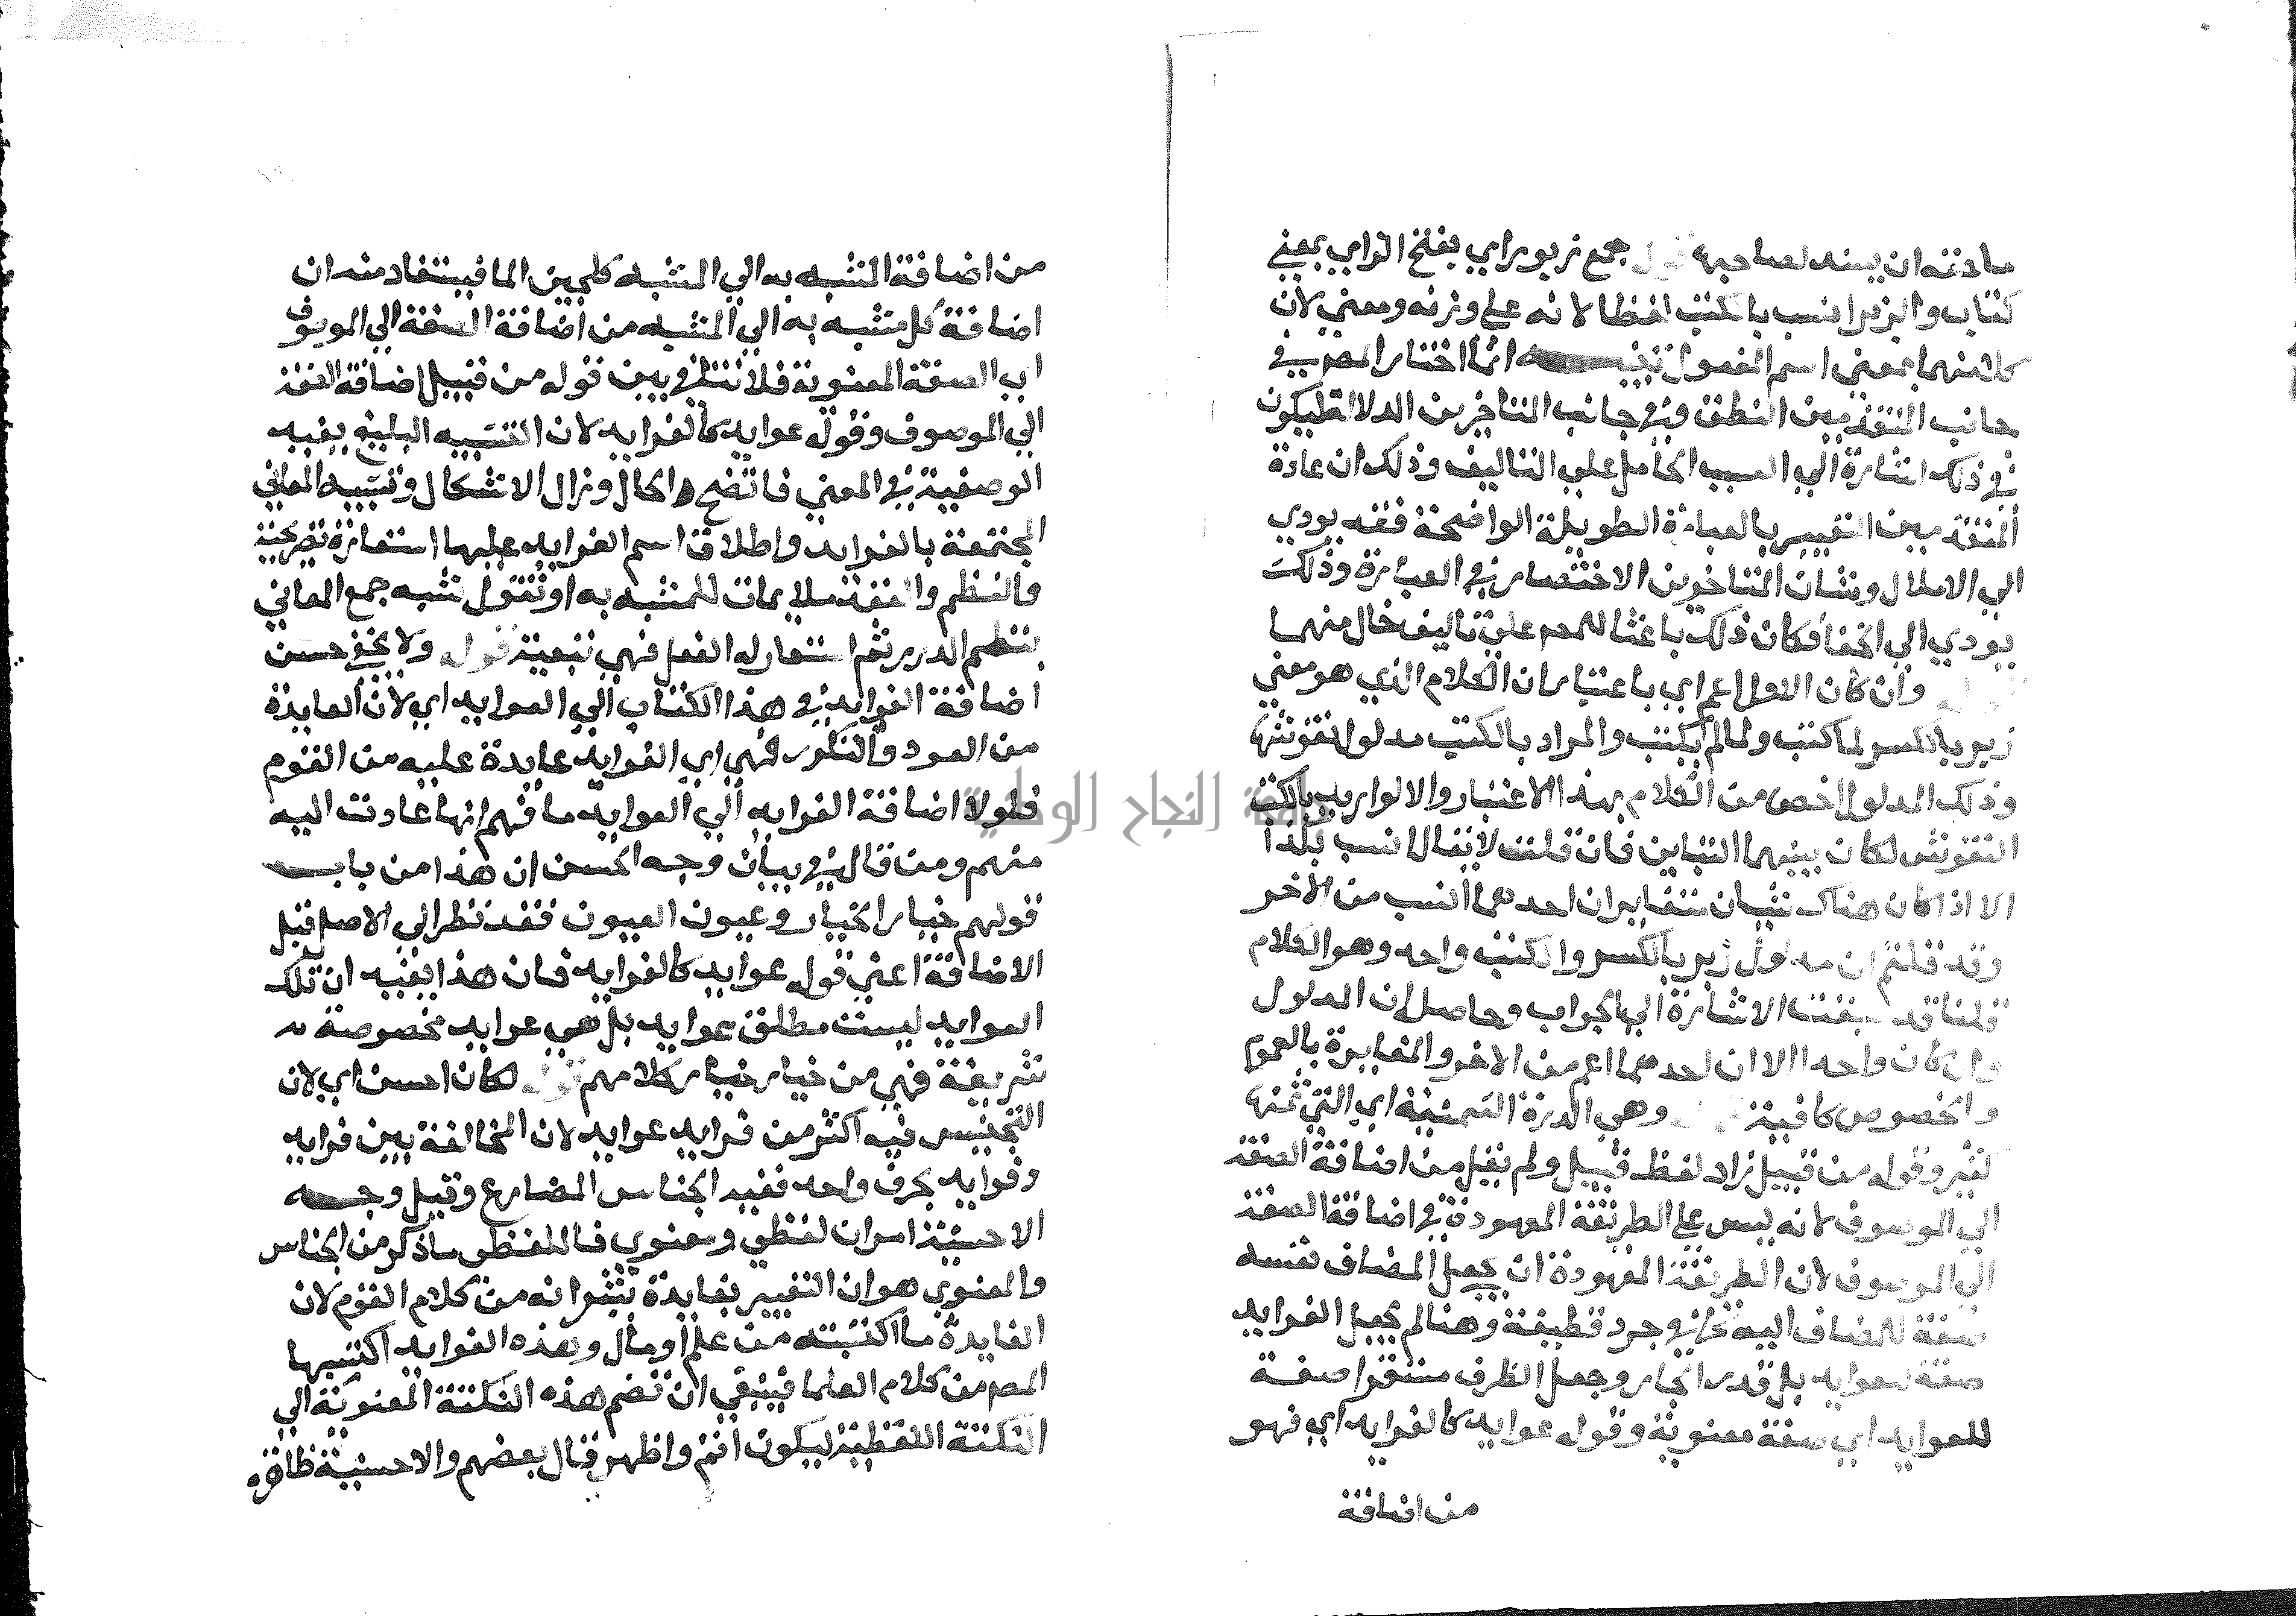 ما حقه ان يسند لصاحبها قوله جمع زبور اي بفتح الزاي بمعني
كتاب والزبر انسب بالكتب لفظا لانه علي وزنه ومعني لان
كلا منهما بمعني اسم المفعول تنبيه انما اختار المص في
جانب المتقدمين النطق وفي جانب المتاخرين الدلالة ليكون
في ذلك اشارة الي السبب الحامل علي التاليف وذلك ان عادة
المتقدمين التعبير بالعبارة الطويلة الواضحة فقد يودي
الي الاملال وشان المتاخرين الاختصار في العبارة وذلك
يودي الي الخفا فكان ذلك باعثا للمص علي تاليف خال منهما
وان كان الاول اعم اي باعتبار ان الكلام الذي هو معني
زبر بالكسر لما كتب ولما لم يكتب والمراد بالكتب مدلول نقوشها
وذلك المدلول اخص من الكلام بهذا الاعتبار والا لو اريد بالكتب
النقوش لكان بينهما التباين فان قلت لا يقال انسب بكذا
الا اذا كان هناك شيان متغايران احدهما انسب من الاخر
وقد قلتم ان مدلول زبر بالكسر والكتب واحد وهو الكلام
قلنا قد سبقت الاشارة الي الجواب وحاصله ان المدلول
وان كان واحدا الا ان احدهما اعم من الاخر والمغايرة بالعموم
والخصوص كافية وهي الدرة الثمينة اي التي ثمنها
كثير وقوله من قبيل زاد لفظ قبيل ولم يقل من اضافة الصفة
الي الموصوف لانه ليس علي الطريقة المعهودة في اضافة الصفة
الي الموصوف لان الطريقة المعهودة ان يجعل المضاف نفسه
صفة للمضاف اليه كما في جرد قطيفة وهنا لم يجعل الفرايد
صفة لعوايد بل قدر الجار وجعل الظرف مستقرا صفة
للعوايد اي صفة معنوية وقوله عوايد كالفرايد اي فهو
من اضافة
من اضافة المشبه به الي المشبه كلجين الما فيستفاد منه ان
اضافة كل مشبه به الي المشبه من اضافة الصفة الي الموصوف
اي الصفة المعنوية فلا تنافي بين قوله من قبيل اضافة الصفة
الي الموصوف وقوله عوايد كالفرايد لان التشبيه البليغ يفيد
الوصفية في المعني فاتضح الحال وزال الاشكال وتشبيه المعاني
المجتمعة بالفرايد واطلاق اسم الفرايد عليها استعارة تصريحية
والنظم والعقد ملايمات للمشبه به او تقول شبه جمع المعاني
بنظم الدرر ثم استعار له الفعل فهي تبعية قوله ولا يخفي حسن
اضافة الفرايد في هذا الكتاب الي العوايد اي لان العايدة
من العود والتكرر فهي اي الفوايد عايدة عليه من القوم
فلولا اضافة الفرايد الي العوايد ما فهم انها عادت اليه
منهم ومن قال في بيان وجه الحسن ان هذا من باب
قولهم خيار الخيار وعيون العيون فقد نظر الي الاصل قبل
الاضافة اعني قوله عوايد كالفرايد فان هذا يفيد ان تلك
العوايد ليست مطلق عوايد بل هي عوايد مخصوصة
شريفة فهي من خيار خيار كلامهم قوله لكان احسن اي لان
التجنيس فيه اكثر من فرايد عوايد لان المخالفة بين فرايد
وفوايد بحرف واحد ففيه الجناس المضارع وقيل وجه
الاحسنية امران لفظي ومعنوي فاللفظي ما ذكر من الجناس
والمعنوي هو ان التعبير بفايدة يشير انه من كلام القوم لان
الفايدة ما اكتسبته من علم او مال وهذه الفوايد اكتسبها
المص من كلام العلما فينبغي ان تضم هذه النكتة المعنوية الي
النكتة اللفظية ليكون اتم واظهر وقال بعضهم والاحسنية ظاهرة
جامعة النجاح الوطنية